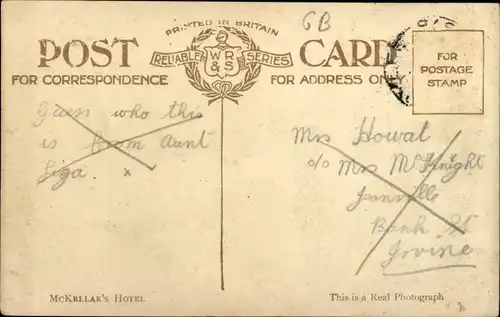 6B
PRINTED IN BRITAIN
POST CARD
RELIABLE WR&S SERIES
FOR CORRESPONDENCE
FOR ADDRESS ONLY
FOR
POSTAGE
STAMP
Guess who this
is from Aunt
Liza. x
Mrs Howat
c/o Mrs McKnight
Bank St
Irvine
McKELLAR'S HOTEL
This is a Real Photograph